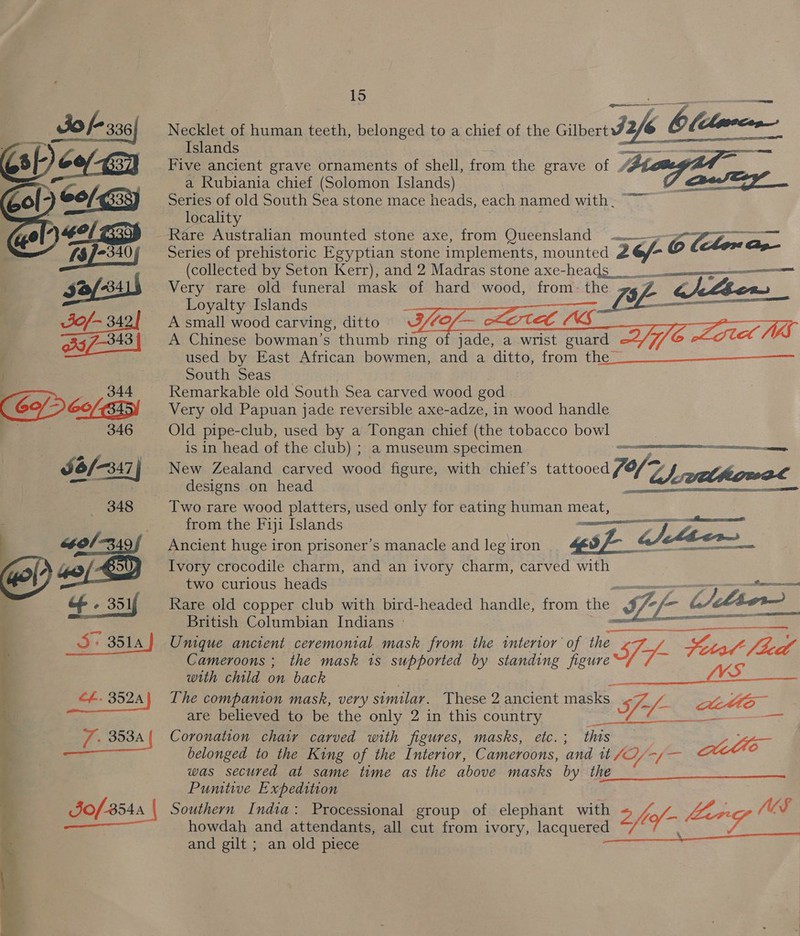 15
30/- 336 Necklet of human teeth, belonged to a chief of the Gilbert 32/6
Islands
63/-) 60/- 337 Five ancient grave ornaments of shell, from the grave of
a Rubiania chief (Solomon Islands)
60/-) 60/- 338 Series of old South Sea stone mace heads, each named with
locality
40/-) 40/- 339 Rare Australian mounted stone axe, from Queensland
340 Series of prehistoric Egyptian stone implements, mounted 26/-
(collected by Seton Kerr), and 2 Madras stone axe-heads
341 Very rare old funeral mask of hard wood, from the 78/-
Loyalty Islands
30/- 342 A small wood carving, ditto 3/10/- NS
343 A Chinese bowman's thumb ring of jade, a wrist guard 2/7/6 NS
used by East African bowmen, and a ditto, from the
South Seas
344 Remarkable old South Sea carved wood god
60/-) 60/- 345 Very old Papuan jade reversible axe-adze, in wood handle
346 Old pipe-club, used by a Tongan chief (the tobacco bowl
is in head of the club) ; a museum specimen
347 New Zealand carved wood figure, with chief's tattooed 70/-
designs on head
348 Two rare wood platters, used only for eating human meat,
from the Fiji Islands
40/- 349 Ancient huge iron prisoner's manacle and leg iron
40/-) 40/- 350 Ivory crocodile charm, and an ivory charm, carved with
two curious heads
351 Rare old copper club with bird-headed handle, from the
British Columbian Indians
351A Unique ancient ceremonial mask from the interior of the
Cameroons ; the mask is supported by standing figure
with child on back NS
352A The companion mask, very similar. These 2 ancient masks ditto
are believed to be the only 2 in this country
7. 353A Coronation chair carved with figures, masks, etc. ; this
belonged to the King of the Interior, Cameroons, and it 10/-/- ditto
was secured at same time as the above masks by the
Punitive Expedition
30/- 354A Southern India: Processional group of elephant with 2/10/- NS
howdah and attendants, all cut from ivory, lacquered
and gilt ; an old piece